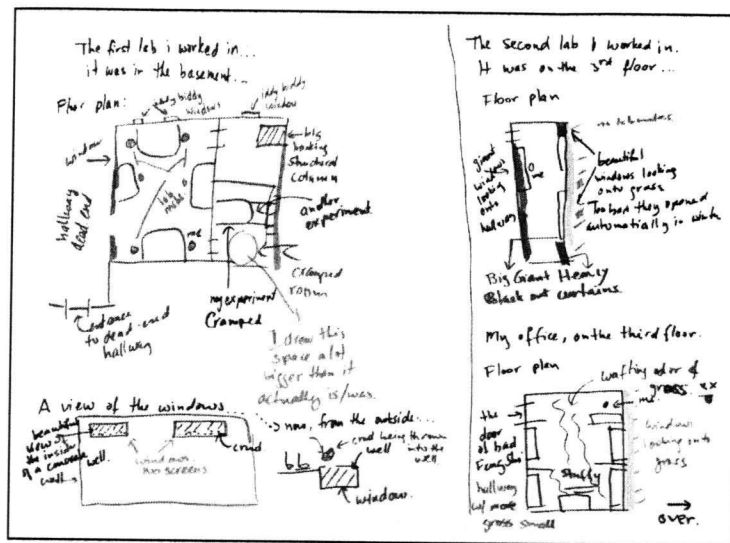 The first lab i worked in...
it was in the basement...
Floor plan:
iddy biddy
windows
iddy biddy
window
window
big
honking
structural
column
another
experiment
hallway
dead end
lab
mates
me
cramped
room
my experiment
Cramped
entrance
to dead-end
hallway
I drew this
space a lot
bigger than it
actually is/was.
A view of the windows
beautiful
view of
the inside
of a concrete
well.
windows.
no screens
crud
now, from the outside...
crud being thrown
into the
well
well
window.
The second lab I worked in.
It was on the 3rd floor...
Floor plan
giant
windows
looking
onto
hallway
me
beautiful
windows looking
onto grass
Too bad they opened
automatically in winter
Big Giant Heavy
Black out curtains.
My office, on the third floor.
Floor plan
wafting odor of
gross.
me
the
door
of bad
Feng Shui
hallway
w/ more
gross smell
Stuffy
windows
looking onto
grass
over.